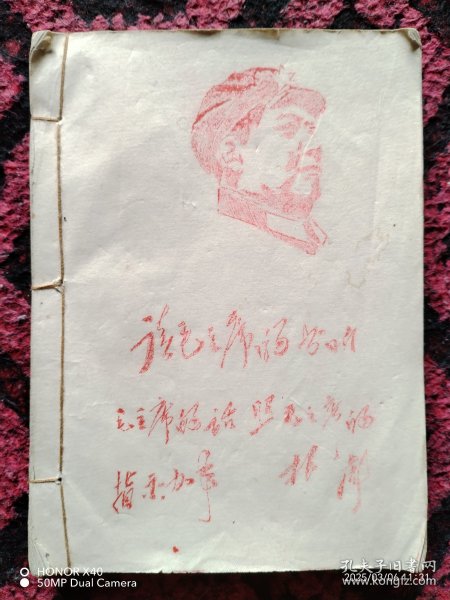 读毛主席的书听
毛主席的话照毛主席的
指示办事 林彪
HONOR X40
50MP Dual Camera
孔夫子旧书网
2025/03/06 11:31
www.kongfz.com